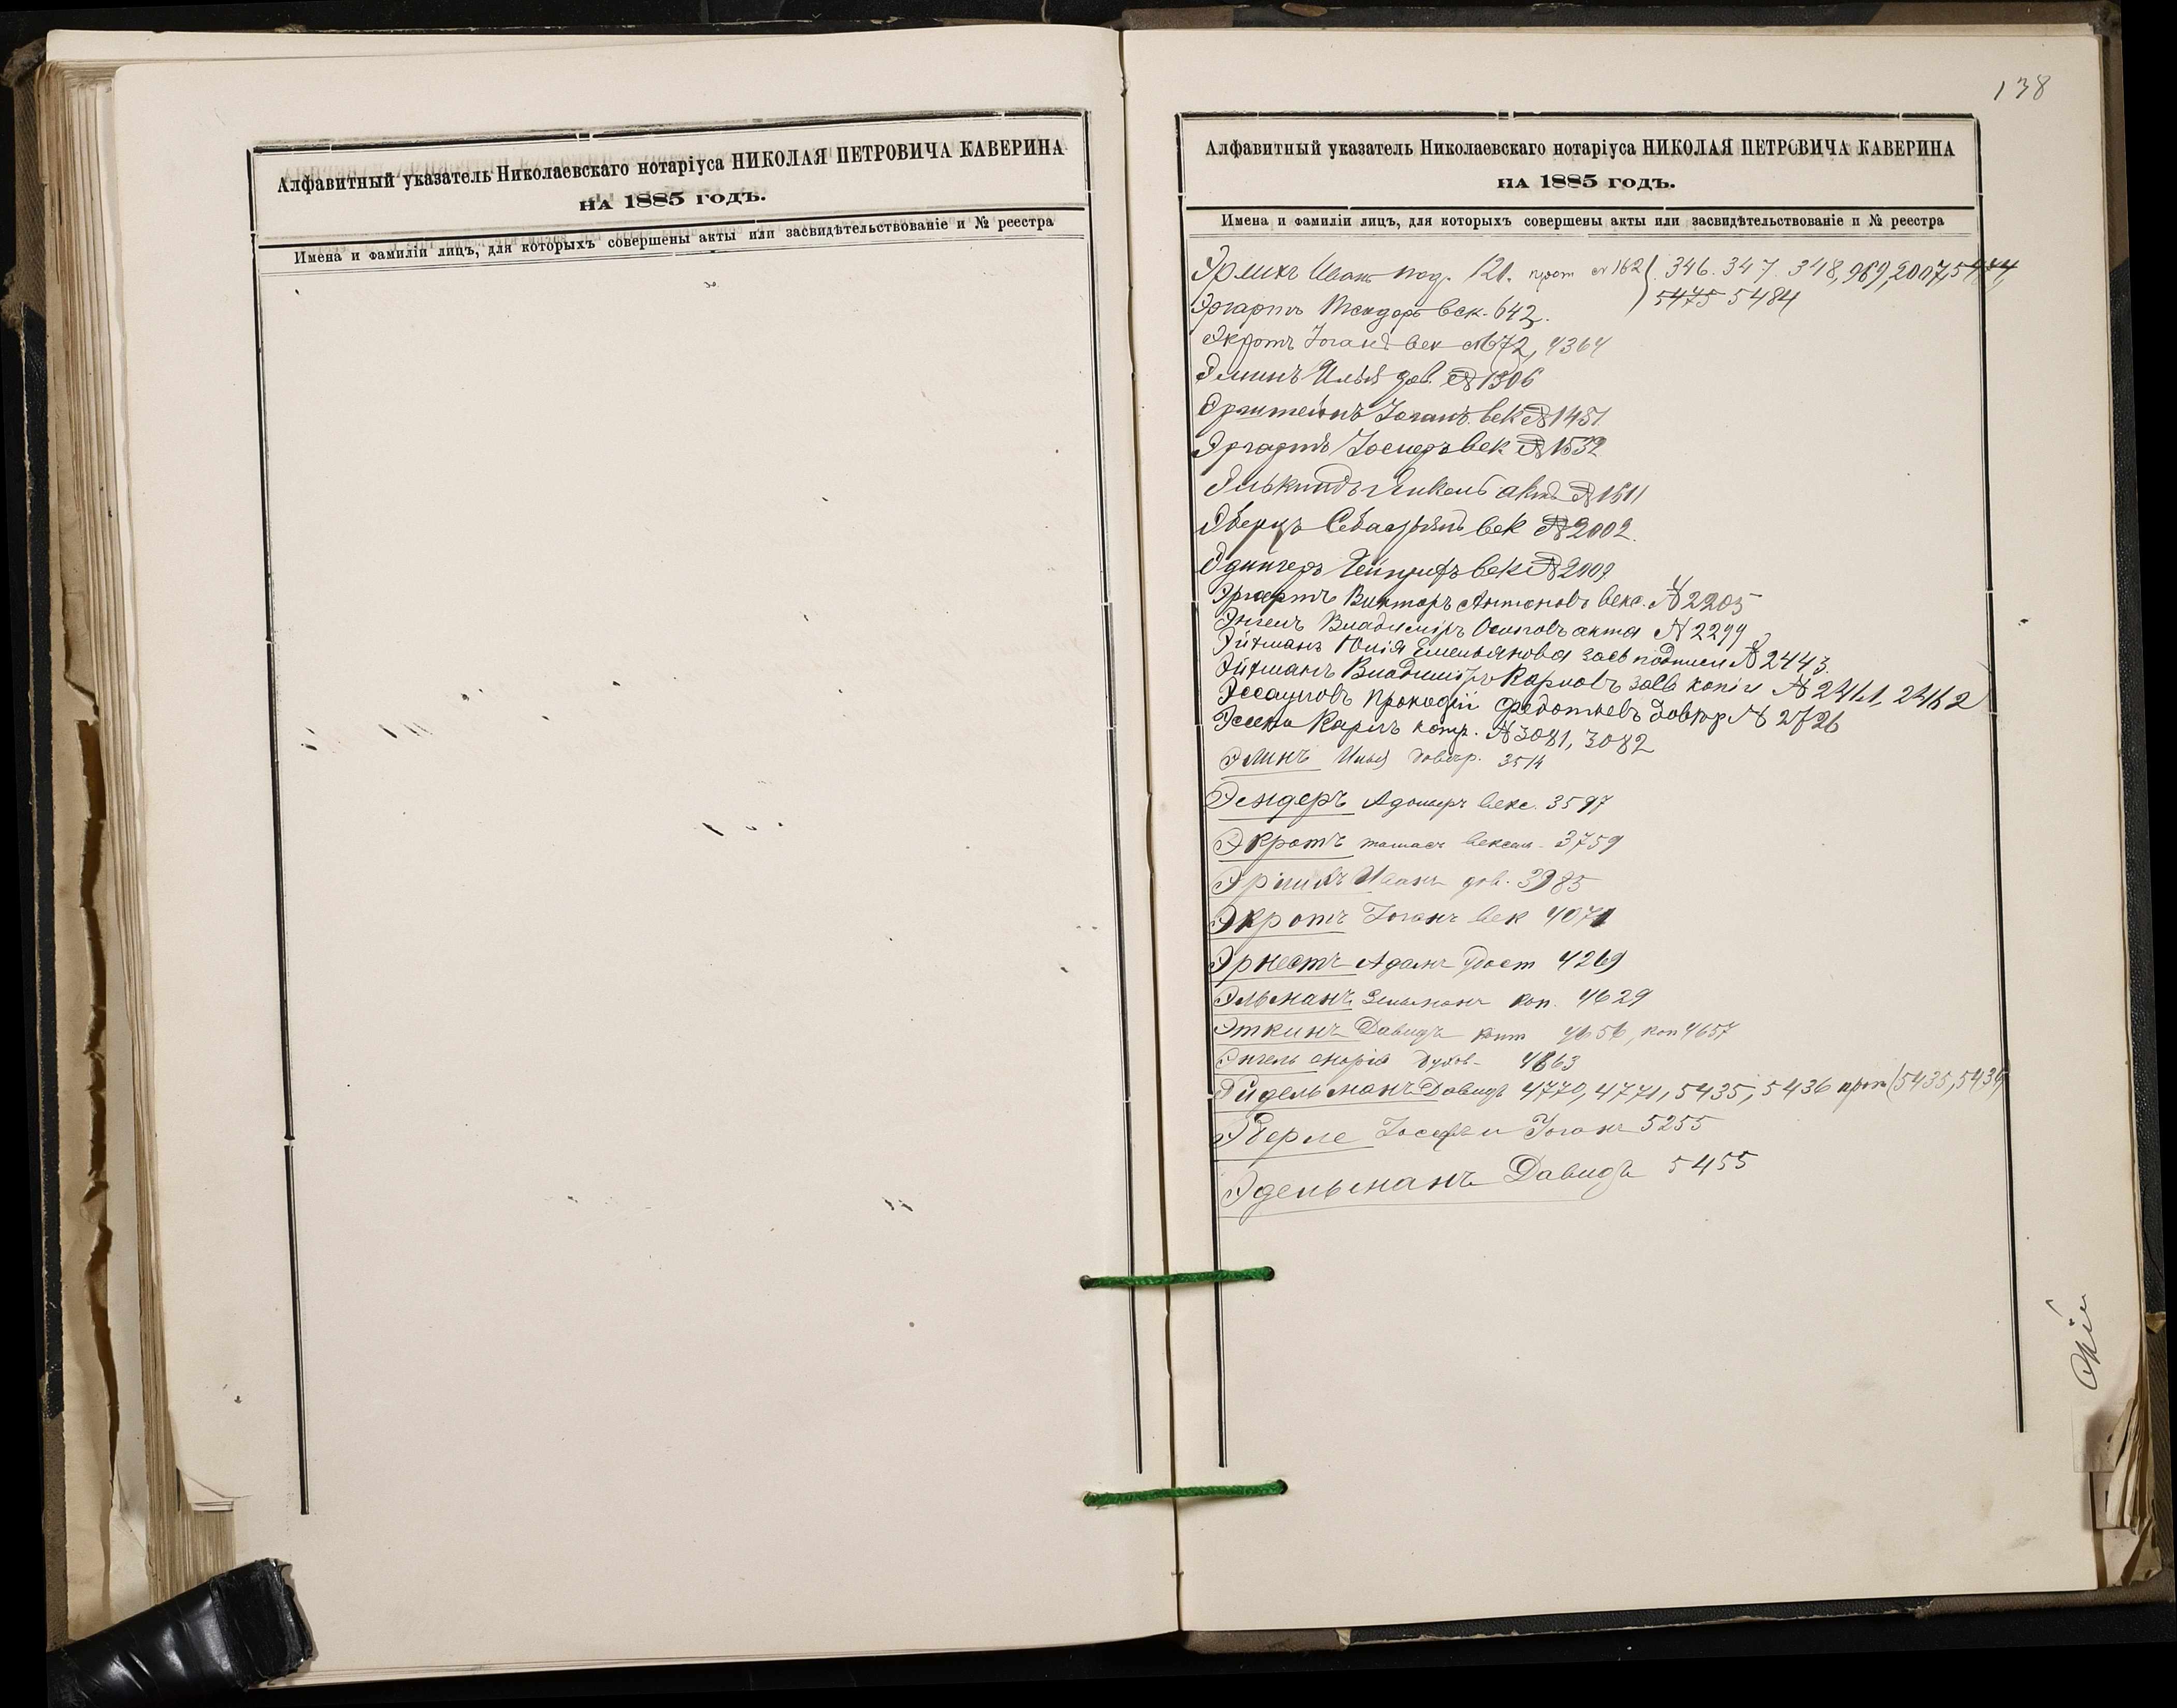 Алфавитный указатель Николаевскаго нотаріуса НИКОЛАЯ ПЕТРОВИЧА КАВЕРИНА
на 1885 годъ.
Имена и фамиліи лицъ, для которыхъ совершены акты или засвидѣтельствованіе и № реестра
138
Алфавитный указатель Николаевскаго нотаріуса НИКОЛАЯ ПЕТРОВИЧА КАВЕРИНА
на 1885 годъ.
Имена и фамиліи лицъ, для которыхъ совершены акты или засвидѣтельствованіе и № реестра
Эрлихъ Иванъ под. 121. прот №162 346. 347. 348, 969, 2007, 5484,
5475 5484
Эргартъ век. 642.
Экротъ Іоганъ век №672, 4364
Элинъ Илья дов. №1306
Эрлитейнъ Іоганъ век №1451
Эргартъ Іосифъ век №1532
Элькиндъ Янкель актъ №1611
Эберцъ Себастьянъ век №2002.
Эдингеръ век №2009
Эргартъ Викторъ Антоновъ векс. №2205
Энгель Владиміръ Осиповъ акта №2299
Эйхманъ Юлія Емельянова засв подписи №2443.
Эйхманъ Владиміръ Карловъ засв копіи № 2461, 2462
Эссауловъ Прокофій Федотьевъ довѣр № 2726
Карлъ контр. №3081, 3082
Элинъ Илья довѣр. 3514
Эсндеръ векс. 3597
Экротъ томасъ вексель 3759
Эрлихъ Иванъ дов. 3985
Экротъ Іоганъ век 4071
Эрнестъ Адамъ удост 4269
Эльманъ Зельманъ коп. 4629
Эткинъ Давидъ конт 4656, коп 4657
Энгель Марія духов. 4663
Эйдельманъ Давидъ 4770, 4771, 5435, 5436 прот (5435, 5436)
Эберле Іосифъ и Іоганъ 5255
Эдельманъ Давидъ 5455